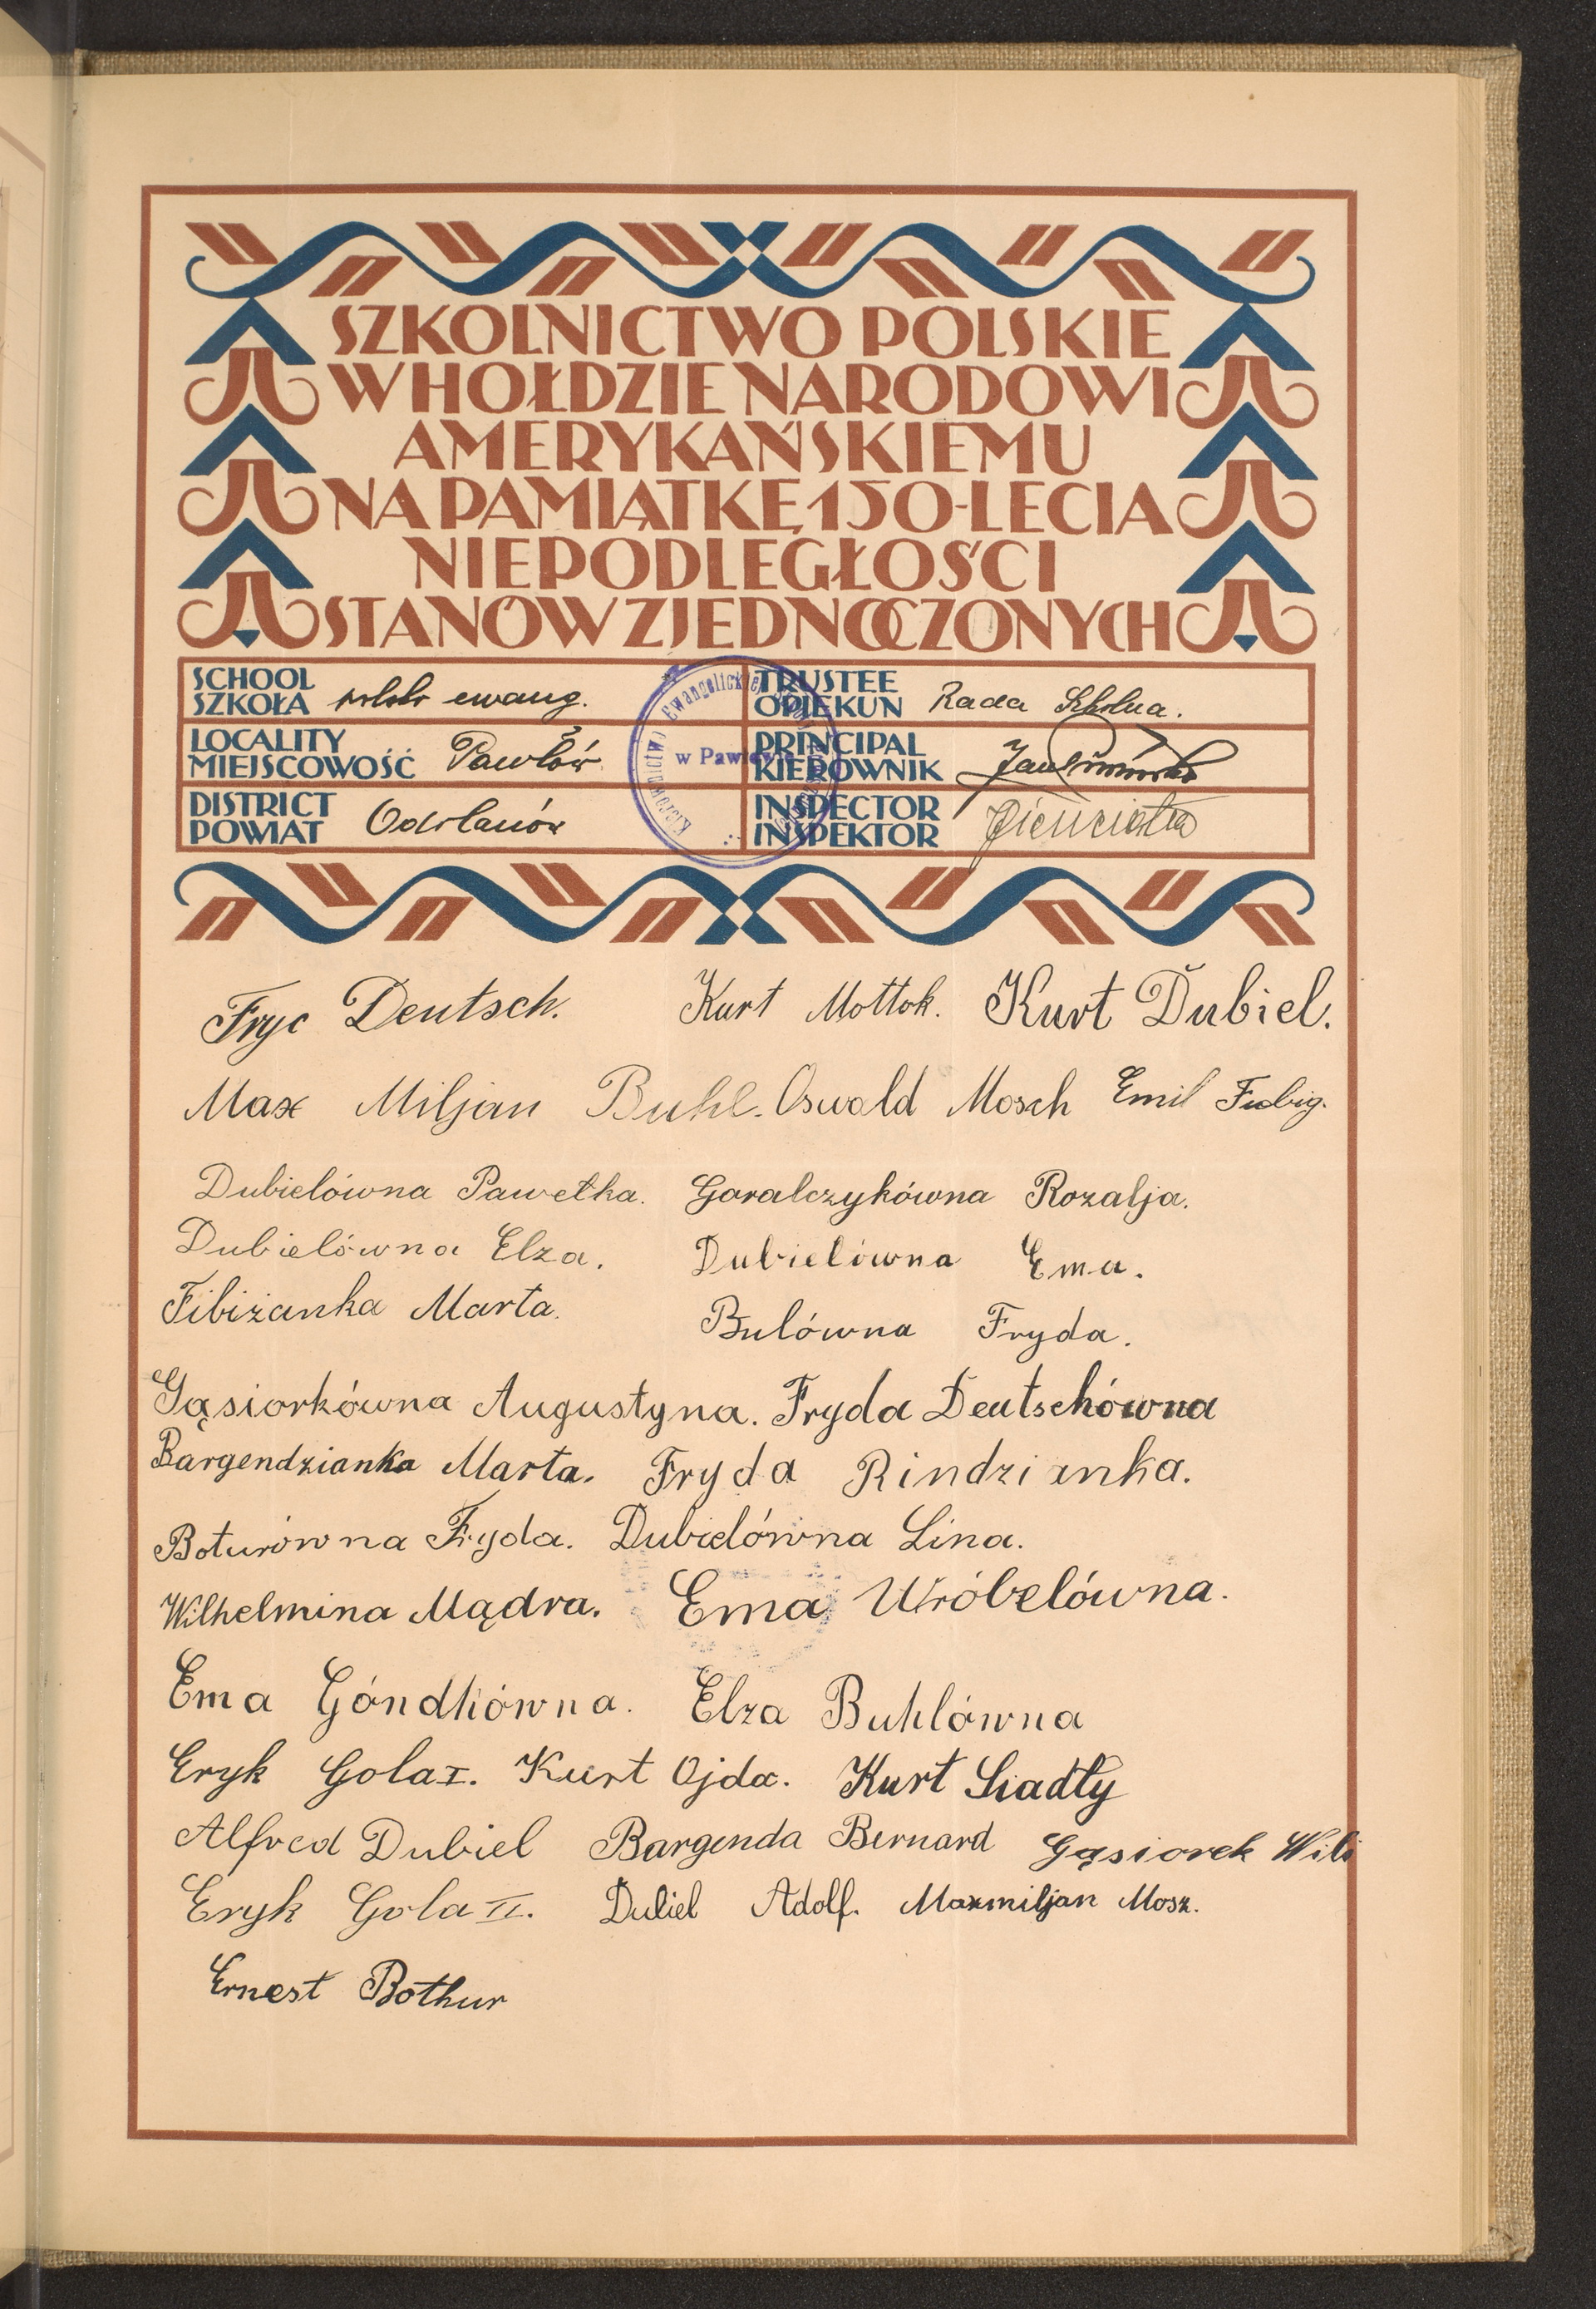 SZKOLNICTWO POLSKIE
W HOŁDZIE NARODOWI
AMERYKAŃSKIEMU
NA PAMIĄTKĘ 150-LECIA
NIEPODLEGŁOŚCI
STANÓW ZJEDNOCZONYCH
SCHOOL
SZKOŁA ewang.
TRUSTEE
OPIEKUN Rada Szkolna.
LOCALITY
MIEJSCOWOŚĆ Pawłów
PRINCIPAL
KIEROWNIK
DISTRICT
POWIAT Odolanów
INSPECTOR
INSPEKTOR
Kierownictwo Ewangelickiej
w Pawłowie
Fryc Deutsch. Kurt Mottok. Kurt Dubiel.
Max Miljan Buhl. Oswald Mosch Emil Fiebig.
Dubielówna Pawełka. Goralczykówna Rozalja.
Dubielówna Elza. Dubielówna Ema.
Fibiżanka Marta. Bulówna Fryda.
Gąsiorkówna Augustyna. Fryda Deutschówna
Bargendzianka Marta. Fryda Rindzianka.
Boturówna Fryda. Dubielówna Lina.
Wilhelmina Mądra. Ema Wróbelówna.
Ema Góndkówna. Elza Buhlówna
Eryk Gola I. Kurt Ojda. Kurt Siadły
Alfred Dubiel Bargenda Bernard Gąsiorek Wili
Eryk Gola II. Dubiel Adolf. Maxmiljan Mosz.
Ernest Bothur